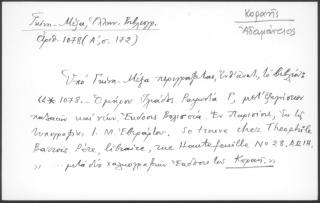 Γκίνη - Μέξα, Ελλην. Βιβλιογρ.
Ἀριθ. 1078 (Α', σ. 172)
Κοραῆς
Ἀδαμάντιος
Ὑπὸ Γκίνη - Μέξα περιγράφεται, ἐνθ' ἀνωτ., τὸ βιβλίον
«* 1078. - Ὁμήρου Ἰλιάδος Ραψωδία Γ, μετ' ἐξηγήσεων
παλαιῶν καὶ νέων. Ἔκδοσις Βολισσία. Ἐν Παρισίοις, Ἐκ τῆς
τυπογραφίας Ι. Μ. Ἐβεράρτου. Se trouve chez Théophile
Barrois Père, libraire, rue Hautefeuille No 28.
» ... μετὰ δύο χαλκογραφιῶν Ἐκδότης ὁ Κοραῆς »